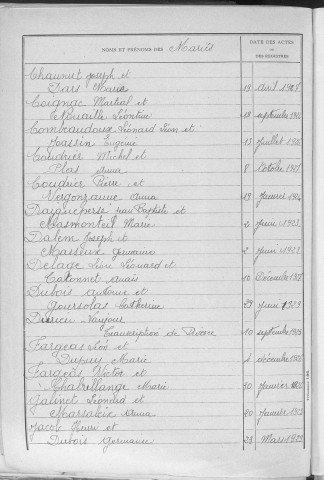 NOMS ET PRÉNOMS DES Mariés
DATE DES ACTES
OU
DES REGISTRES
Chaunut Joseph et
Dars Marie 19 avril 1907
Coignac Martial et
Nouaille Léontine 18 septembre
Combeaudoux Léonard Léon et
Jassin Eugénie 13 juillet
Coudrier Michel et
Plas Anna 8 octobre
Coudrier Pierre et
Vergonzanne Anna 19 Janvier
Daigueperse Jean Baptiste et
Masmonteil Marie 2 Juin 1923
Dalem Joseph et
Massieux Germaine 2 Juin 1923
Delage Léon Léonard et
Catonnet Anaïs 10 Décembre
Dubois Antoine et
Goursolas Catherine 29 Juin 1929
Transcription de Divorce 10 septembre
Fargeas Léon et
Dupuy Marie 4 décembre
Fargeas Victor et
Chabrellange Marie 30 Janvier
Galinet Léonard et
Marsaleix Anna 20 Janvier
Jacob Henri et
Dubois Germaine 23 Mars 1929